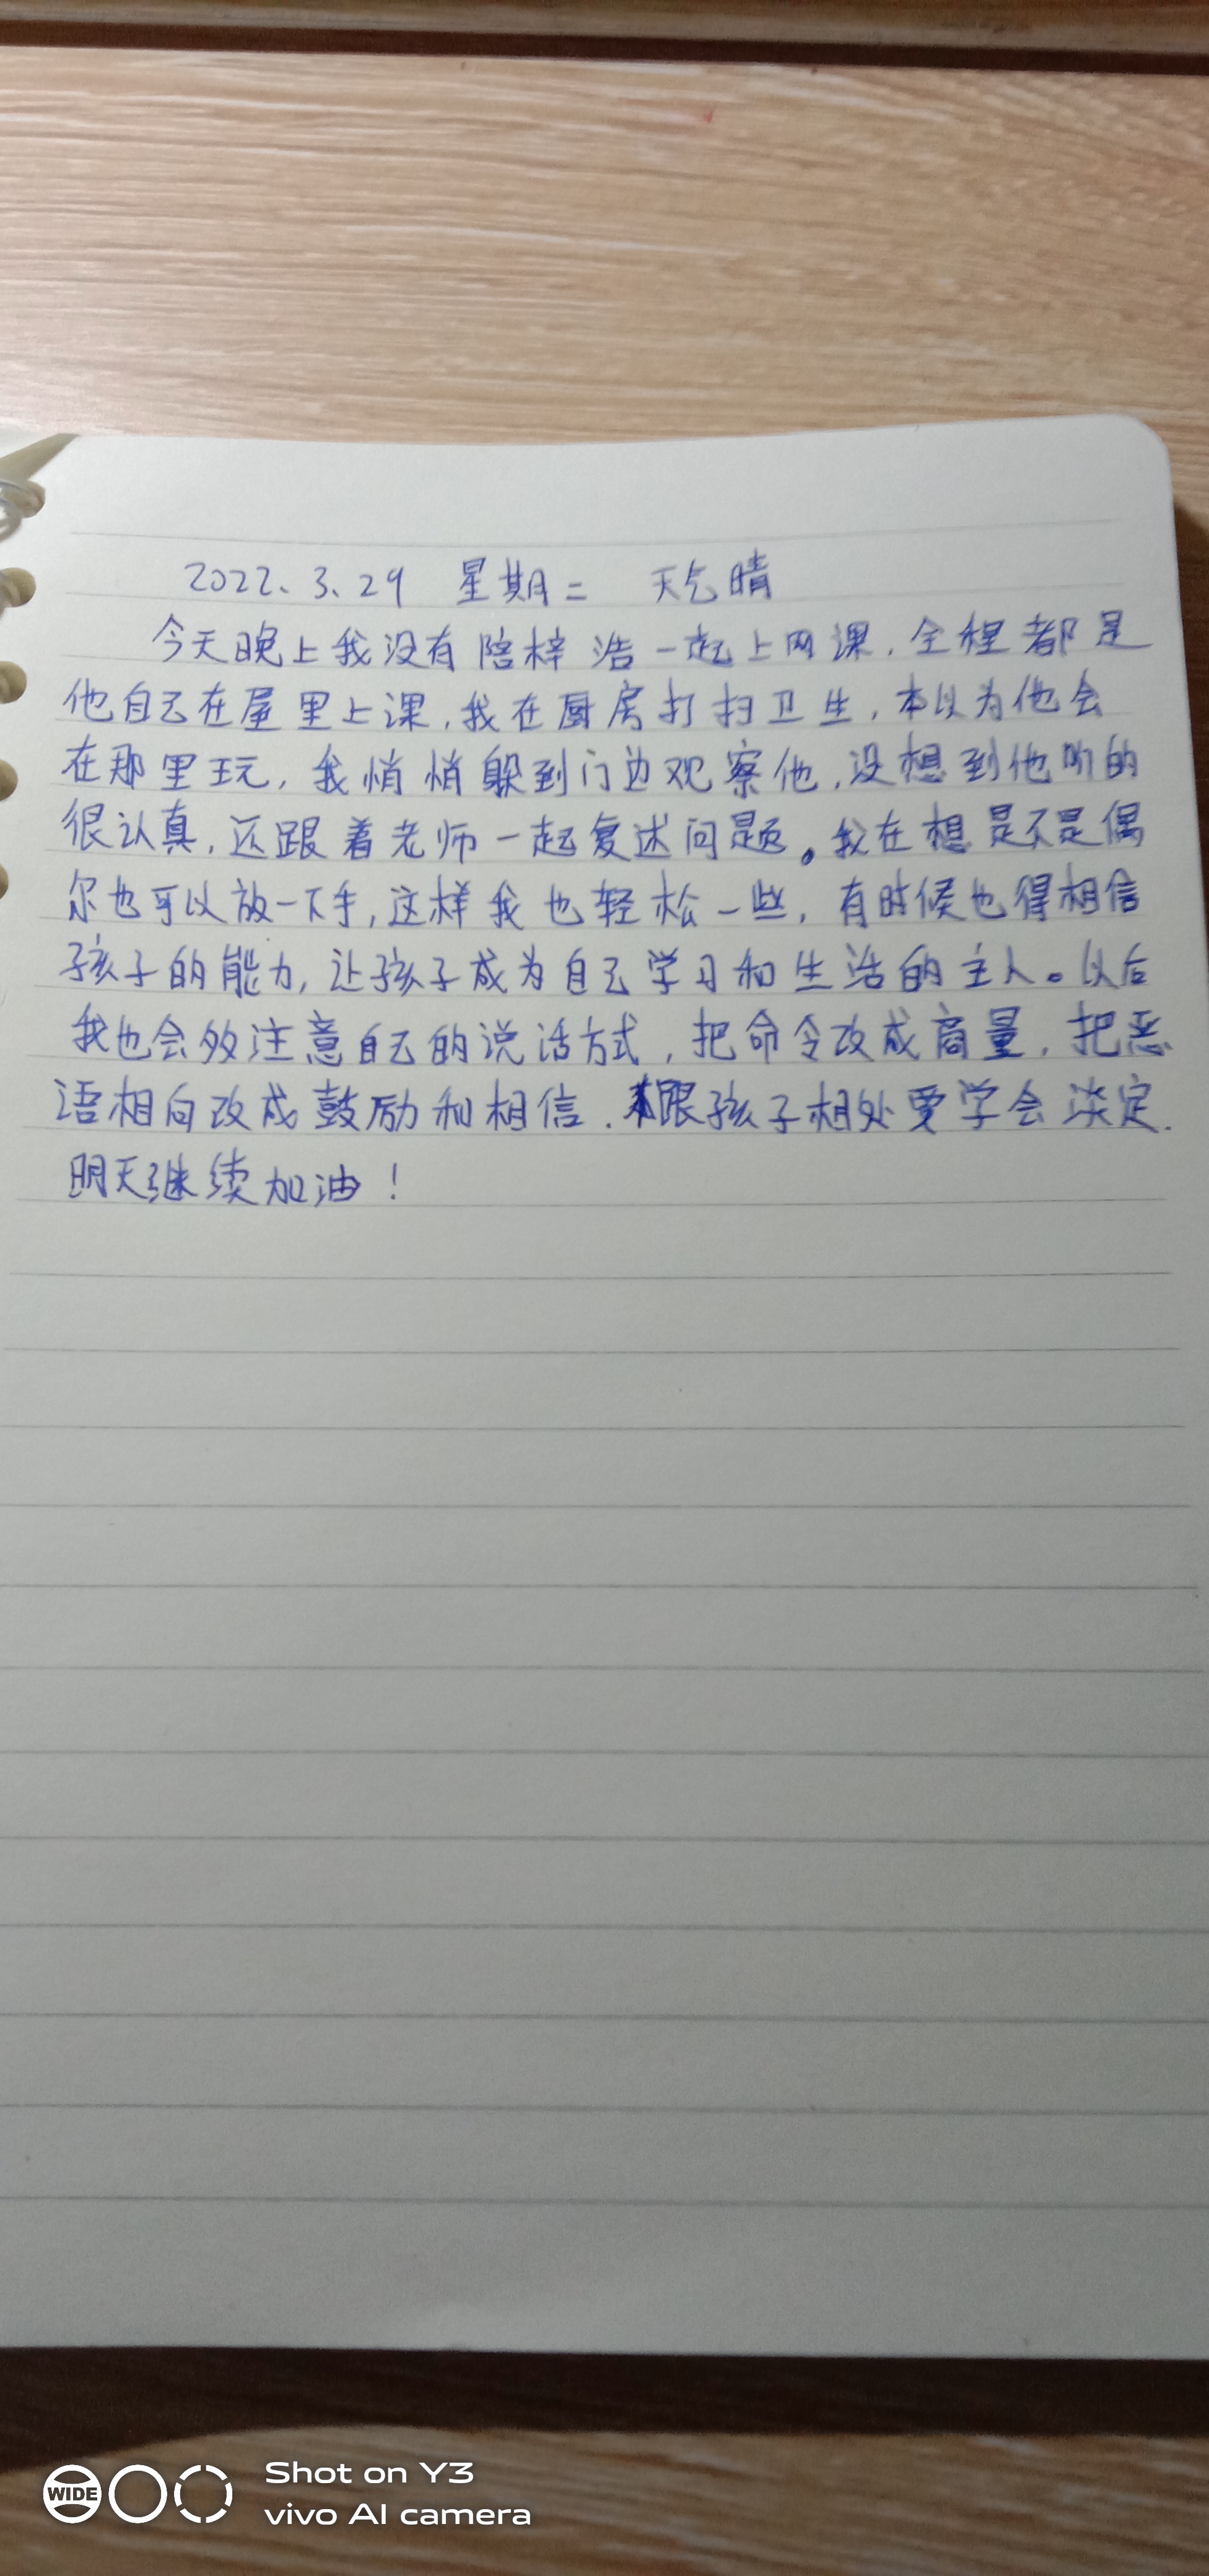 2022、3、29 星期二 天气晴
今天晚上我没有陪梓浩一起上网课，全程都是
他自己在屋里上课，我在厨房打扫卫生，本以为他会
在那里玩，我悄悄躲到门边观察他，没想到他听的
很认真，还跟着老师一起复述问题。我在想是不是偶
尔也可以放一下手，这样我也轻松一些，有时候也得相信
孩子的能力，让孩子成为自己学习和生活的主人。以后
我也会多注意自己的说话方式，把命令改成商量，把恶
语相向改成鼓励和相信．跟孩子相处要学会淡定．
明天继续加油！
WIDE
Shot on Y3
vivo AI camera